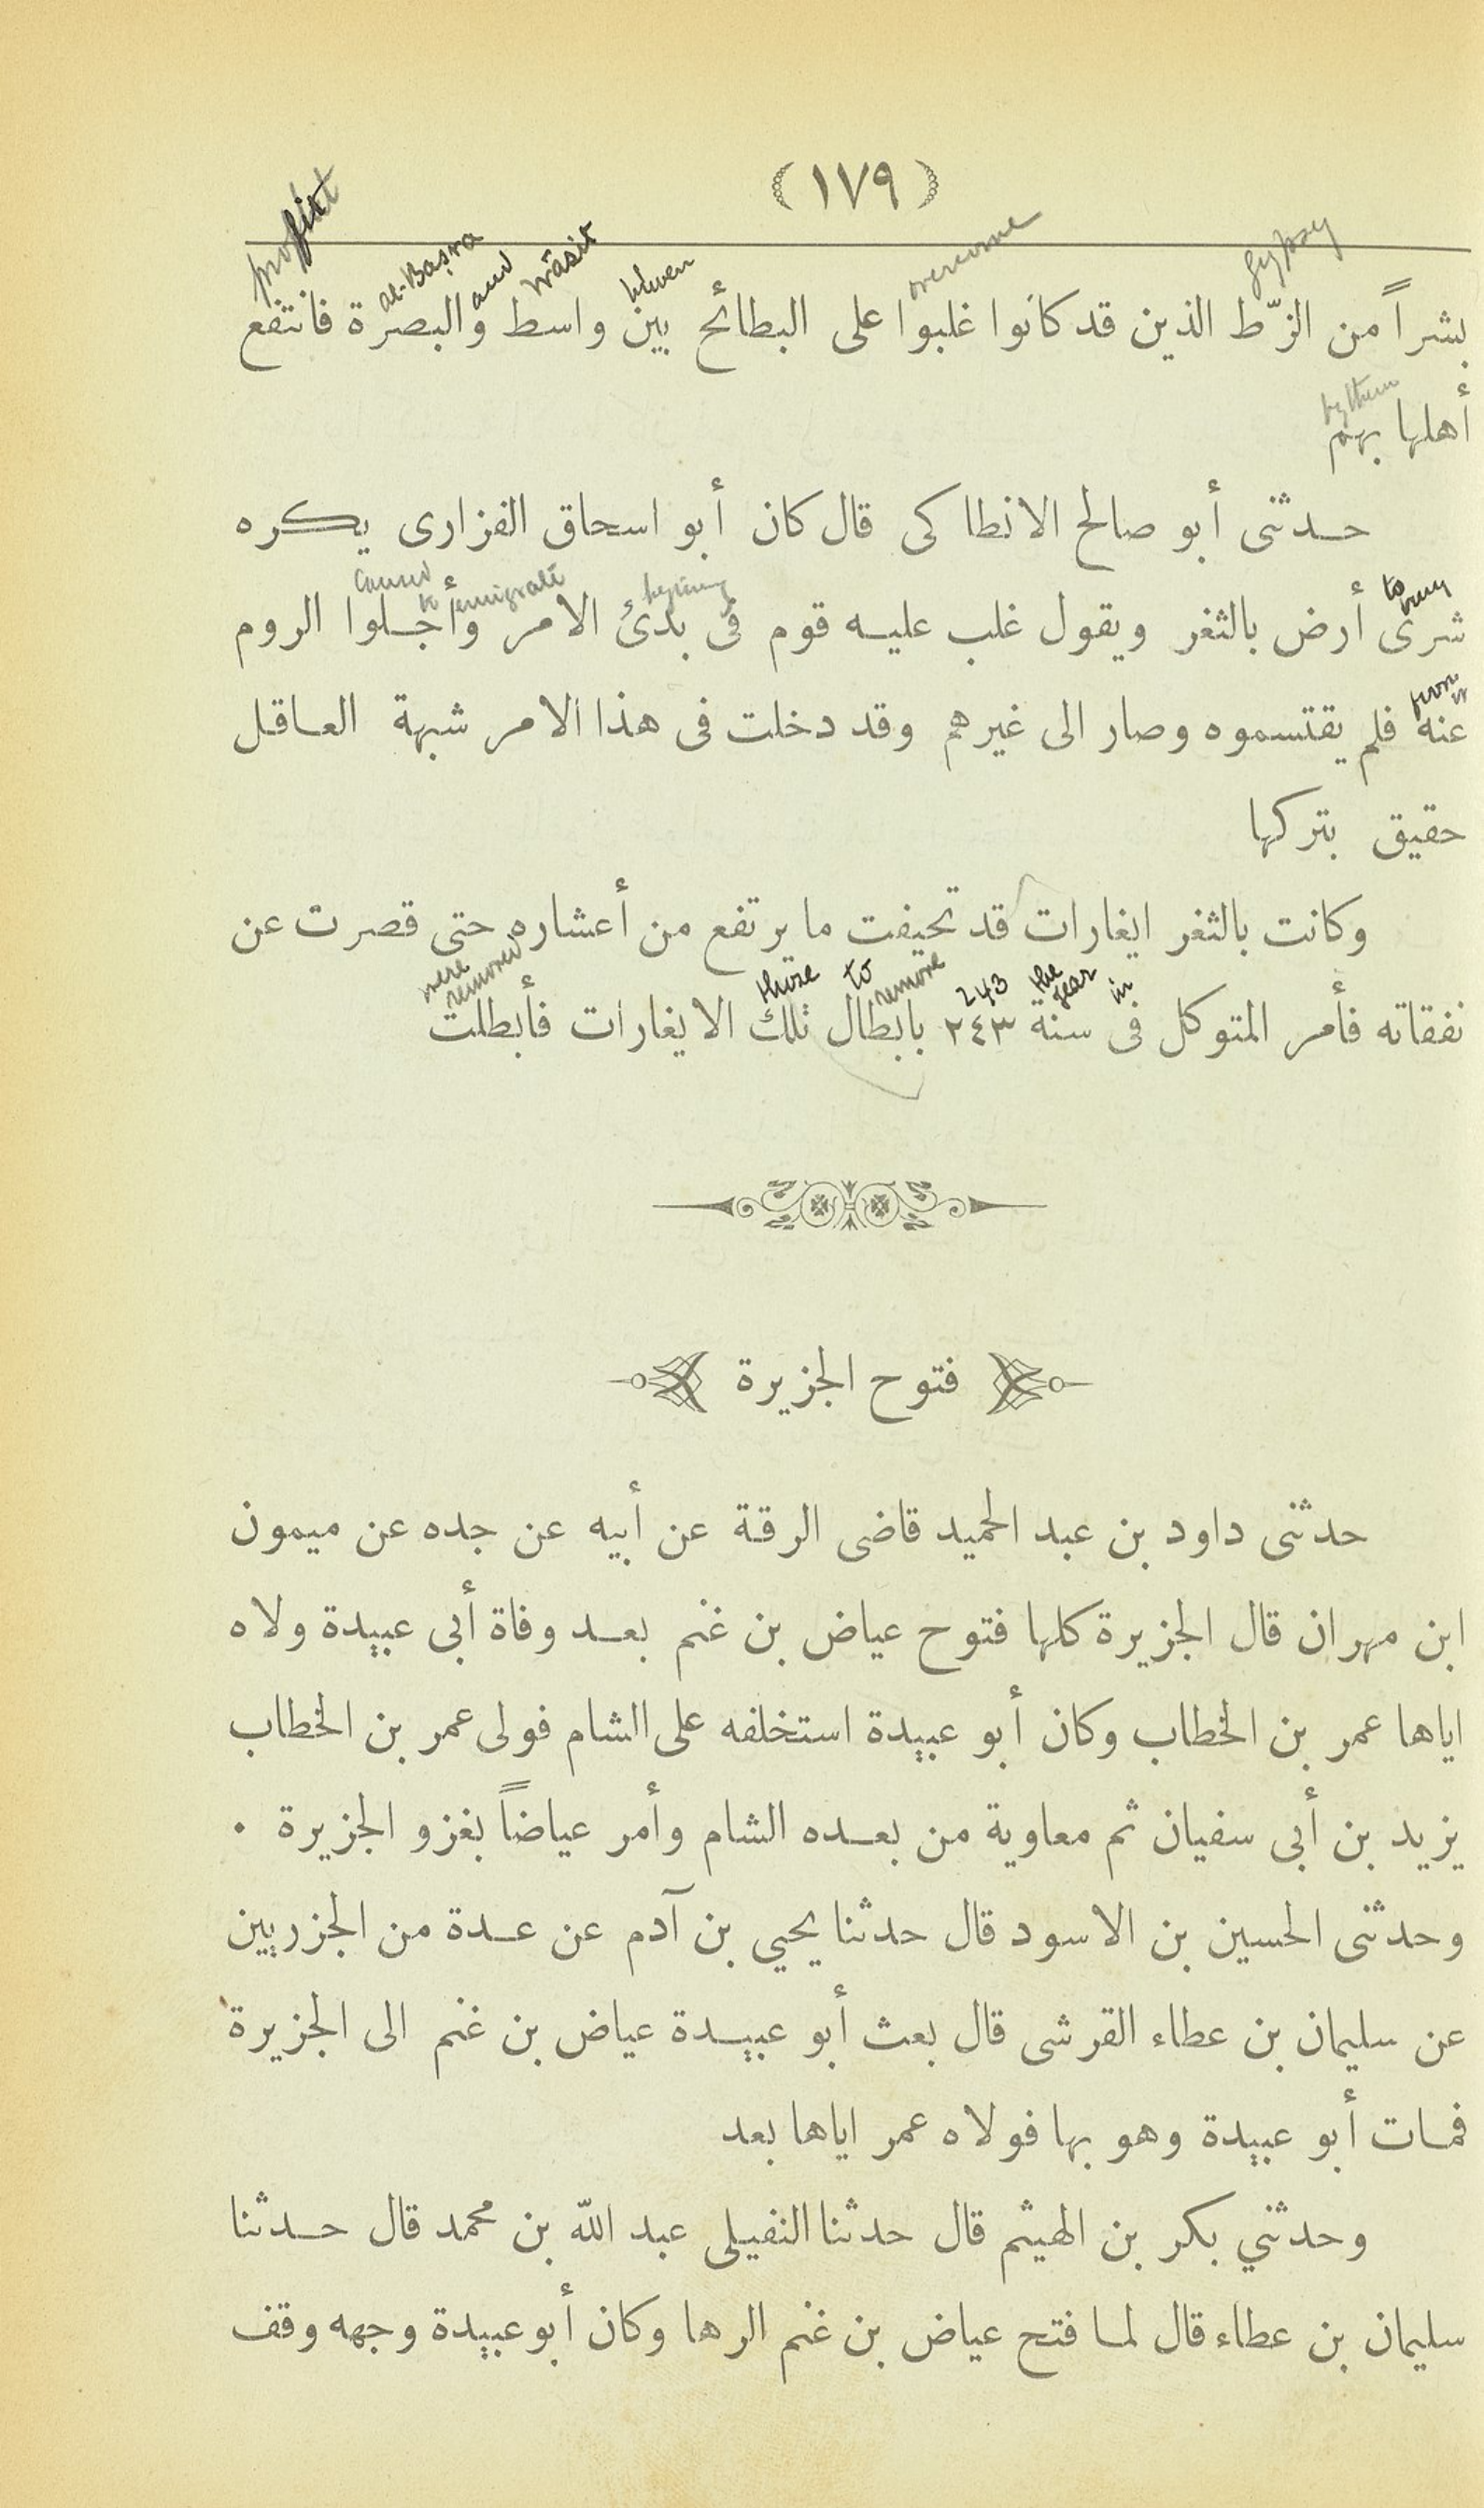 (١٧٩)
profit al-Baṣra and Wāsit between overcome gypsy
بشراً من الزّط الذين قد كانوا غلبوا على البطائح بين واسط والبصرة فانتفع
by them
أهلها بهم
حدثنى أبو صالح الانطاكى قال كان أبو اسحاق الفزارى يكره
caused to emigrate to buy
شرى أرض بالثغر ويقول غلب عليه قوم فى بدئ الامر وأجلوا الروم
from it
عنه فلم يقتسموه وصار الى غيرهم وقد دخلت فى هذا الامر شبهة العاقل
حقيق بتركها
وكانت بالثغر ايغارات قد تحيفت ما يرتفع من أعشاره حتى قصرت عن
were removed those to remove 243 the year in
نفقاته فأمر المتوكل فى سنة ٢٤٣ بابطال تلك الايغارات فأبطلت
فتوح الجزيرة
حدثنى داود بن عبد الحميد قاضى الرقة عن أبيه عن جده عن ميمون
ابن مهران قال الجزيرة كلها فتوح عياض بن غنم بعد وفاة أبى عبيدة ولاه
اياها عمر بن الخطاب وكان أبو عبيدة استخلفه على الشام فولى عمر بن الخطاب
يزيد بن أبى سفيان ثم معاوية من بعده الشام وأمر عياضاً بغزو الجزيرة ٠
وحدثنى الحسين بن الاسود قال حدثنا يحيي بن آدم عن عدة من الجزريين
عن سليمان بن عطاء القرشى قال بعث أبو عبيدة عياض بن غنم الى الجزيرة
فمات أبو عبيدة وهو بها فولاه عمر اياها بعد
وحدثني بكر بن الهيثم قال حدثنا النفيلى عبد الله بن محمد قال حدثنا
سليمان بن عطاء قال لما فتح عياض بن غنم الرها وكان أبو عبيدة وجهه وقف